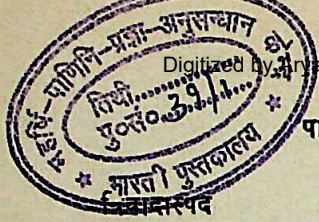 महर्षि-पाणिनि-प्रज्ञा-अनुसन्धान
Digitized by Arya
तिथी..........
पु०सं० 391
भारती पुस्तकालय